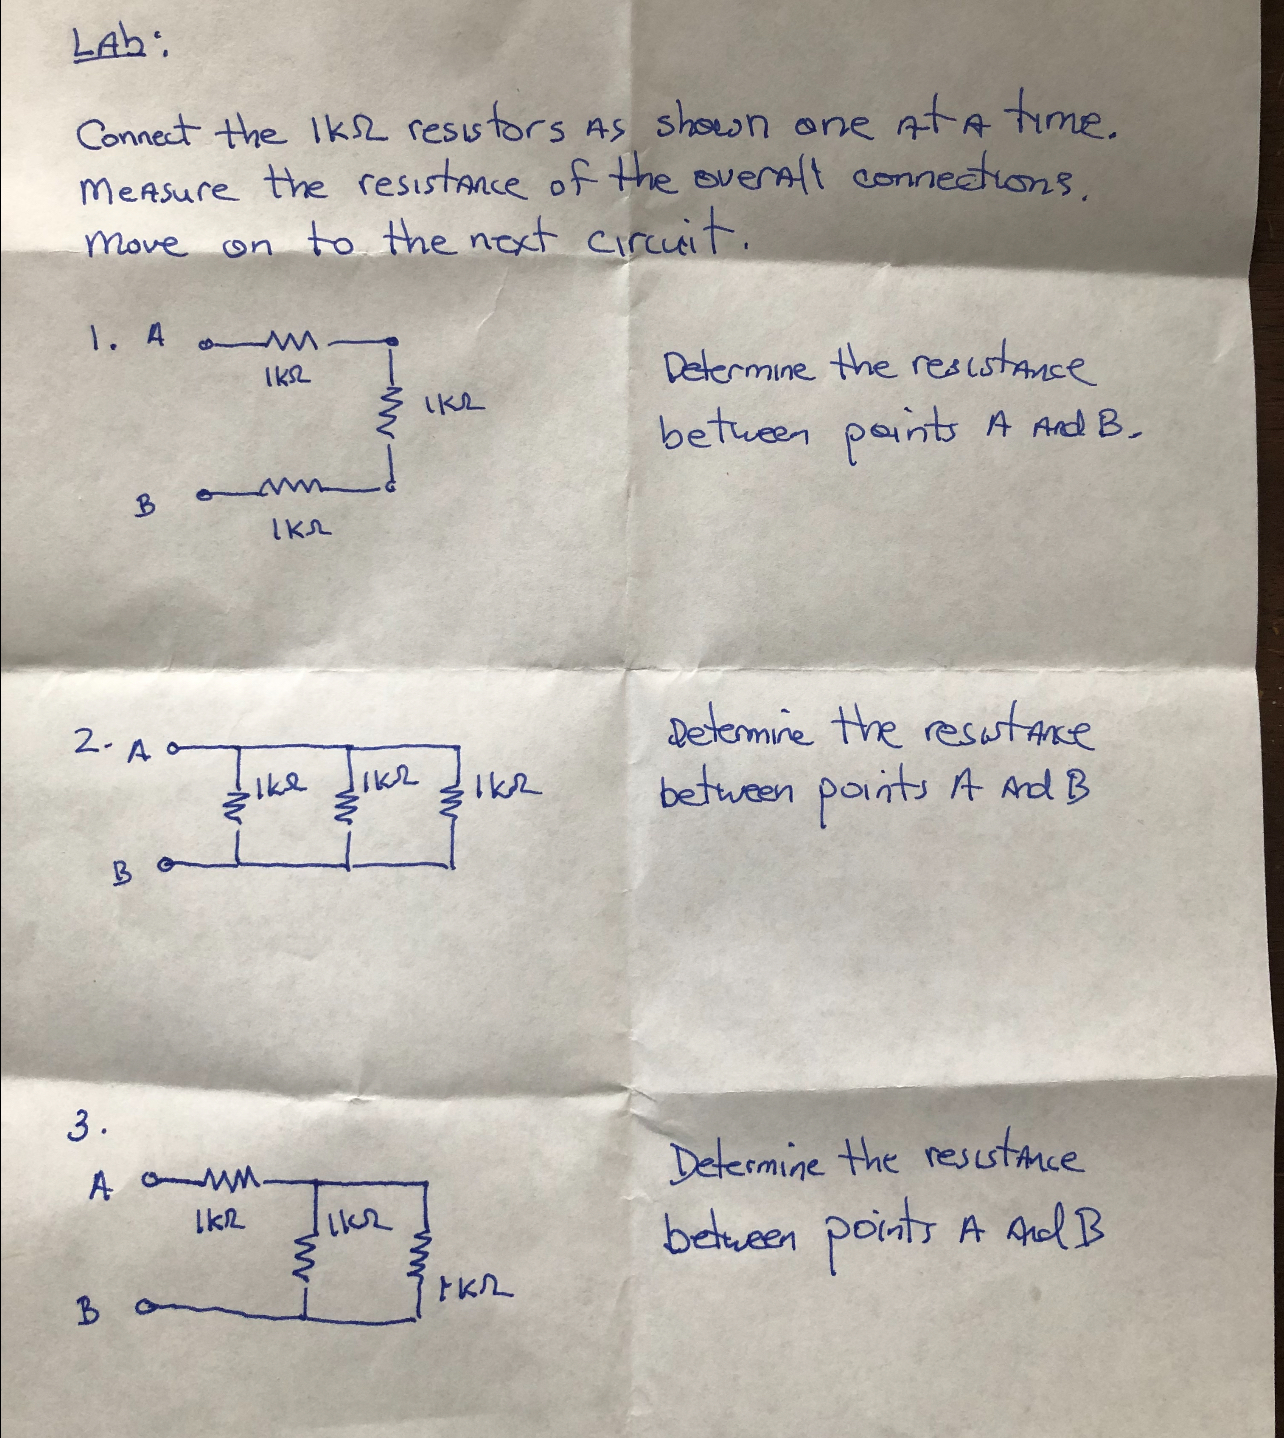 LAb:
Connect the 1kΩ resistors As shown one At A time.
MeAsure the resistAnce of the overAll connections.
Move on to the next circuit.
1. A
1kΩ
1kΩ
Determine the resistance
between points A And B.
B
1kΩ
2. A
1kΩ 1kΩ 1kΩ
Determine the resistAnce
between points A And B
B
3.
A
1kΩ 1kΩ
Determine the resistAnce
between points A And B
1kΩ
B